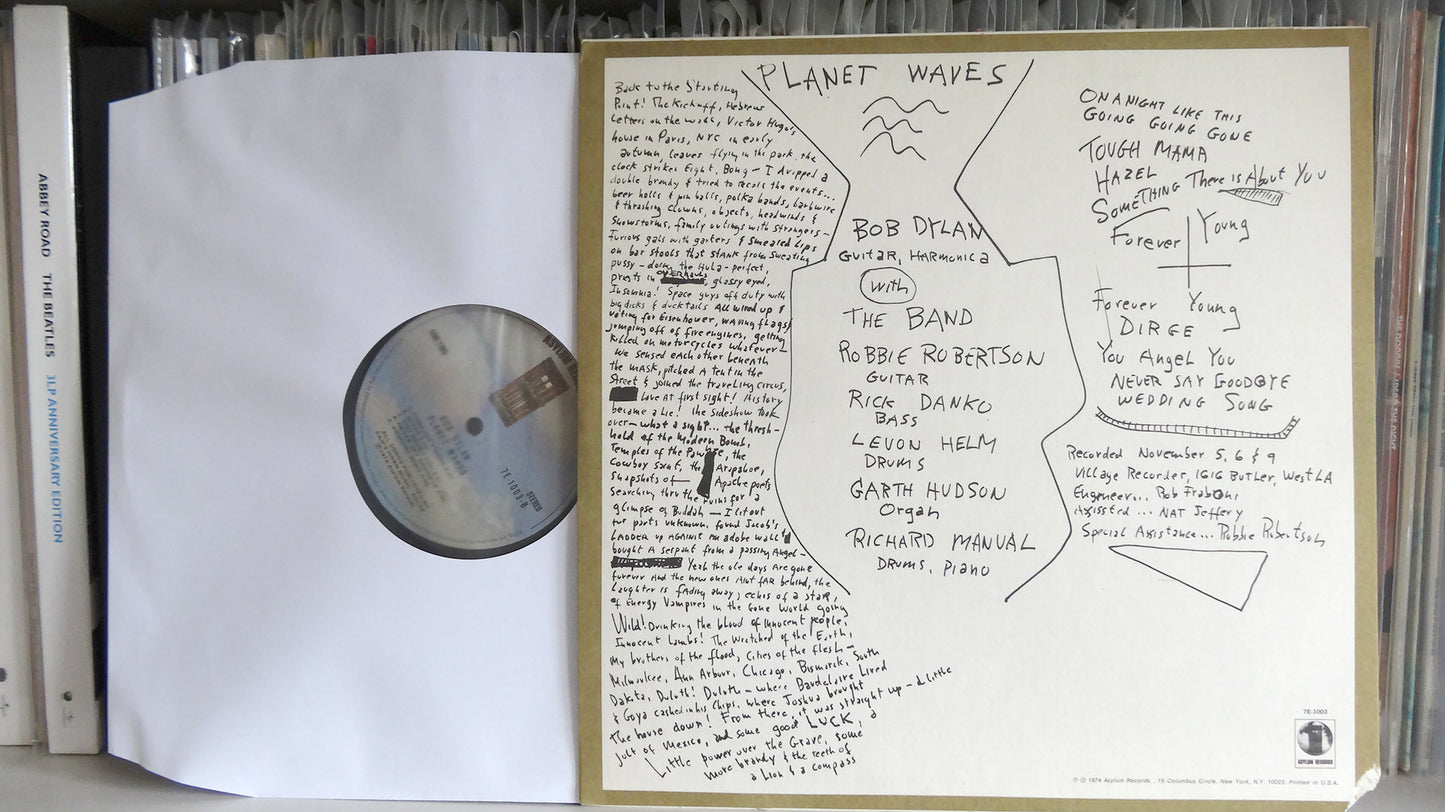 ABBEY ROAD THE BEATLES 3LP ANNIVERSARY EDITION
ASYLUM
7E-1003-B
STEREO
PLANET WAVES
Back to the Starting
Point! The Kickoff, Hebrew
Letters on the wall, Victor Hugo's
house in Paris, NYC in early
autumn, leaves flying in the park, the
clock strikes Eight, Bong — I dripped a
double brandy & tried to recall the events...
beer halls & pin balls, polka bands, barbwire
& thrashing clowns, objects, headwinds &
Snowstorms, family outings with strangers —
Furious gals with garters & smeared lips
on bar stools that stank from sweating
pussy — doing the Hula — perfect,
priests in overhauls, glassy eyed,
Insomnia! Space guys off duty with
big dicks & ducktails All wired up &
voting for Eisenhower, waving flags &
jumping off of fire engines, getting
killed on motorcycles whatever —
We sensed each other beneath
the mask, pitched a tent in the
Street & joined the traveling circus,
Love at first sight! History
became a lie! the sideshow took
over — what a sight... the thresh-
hold of the Modern Bomb,
Temples of the Pawnee, the
Cowboy saint, the Arapahoe,
snapshots of — Apache poets
searching thru the ruins for a
glimpse of Buddah — I lit out
for parts unknown, found Jacob's
Ladder up against an adobe wall &
bought a serpant from a passing Angel —
Yeah the ole days Are gone
forever And the new ones Aint fAR behind, the
Laughter is fading away, echos of a star,
of Energy Vampires in the Gone World going
Wild! Drinking the blood of innocent people,
Innocent lambs! The Wretched of the Earth,
My brothers of the flood, Cities of the flesh —
Milwaukee, Ann Arbour, Chicago, Bismarck, South
Dakota, Duluth! Duluth — where Baudelaire Lived
& Goya cashed in his Chips, where Joshua brought
the house down! From there, it was straight up — a little
jolt of Mexico, and some good LUCK, a
Little power over the Grave, some
more brandy & the teeth of
a Lion & a compass
BOB DYLAN
GUITAR, HARMONICA
with
THE BAND
ROBBIE ROBERTSON
GUITAR
RICK DANKO
BASS
LEVON HELM
DRUMS
GARTH HUDSON
Organ
RICHARD MANUAL
DRUMS, PIANO
ON A NIGHT LIKE THIS
GOING GOING GONE
TOUGH MAMA
HAZEL
SOMETHING There is About You
Forever Young
Forever Young
DIRGE
You Angel You
NEVER SAY GOODBYE
WEDDING SONG
Recorded November 5, 6 & 9
Village Recorder, 1616 Butler, West LA
Engineer... Rob Fraboni
Assissted... NAT Jeffery
Special Assistance... Robbie Robertson
7E-1003
ASYLUM RECORDS
℗ © 1974 Asylum Records, 15 Columbus Circle, New York, N.Y. 10023. Printed in U.S.A.